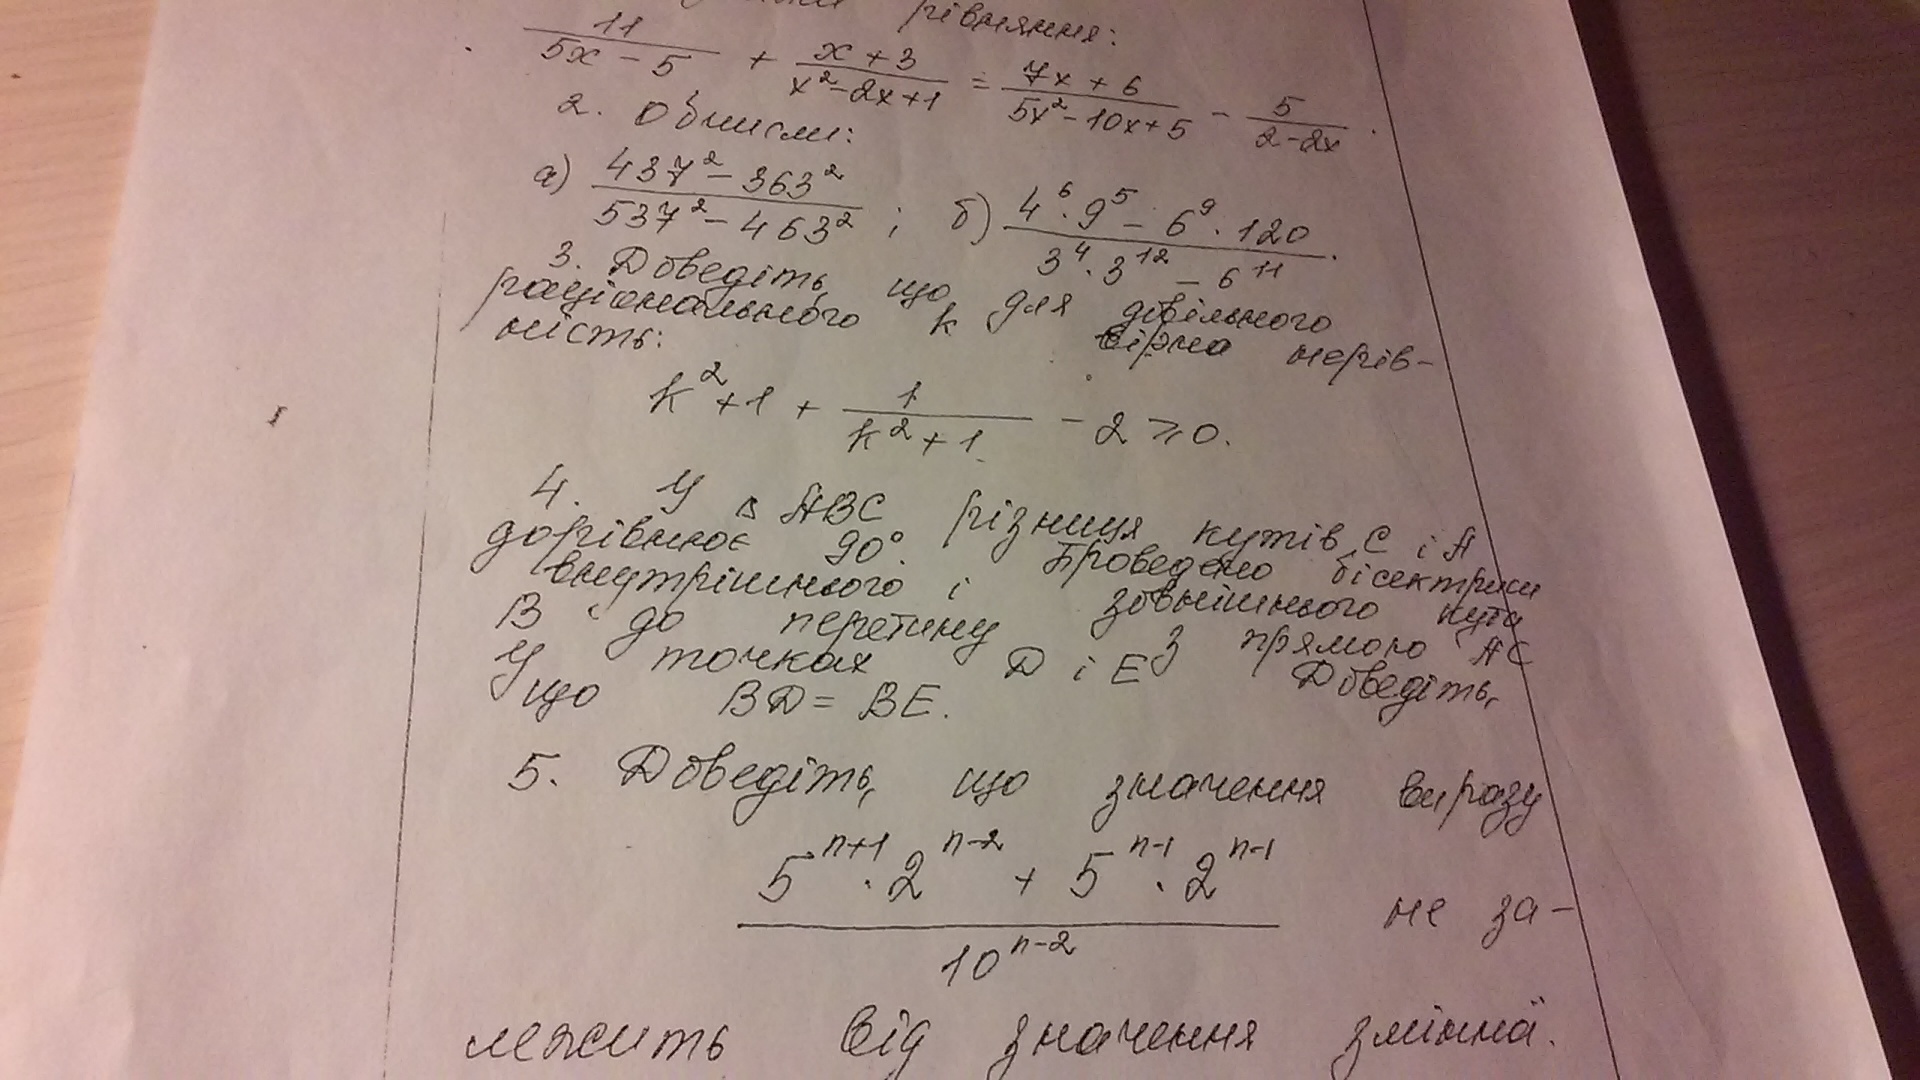 рівняння:
11/(5x - 5) + (x + 3)/(x² - 2x + 1) = (7x + 6)/(5x² - 10x + 5) - 5/(2 - 2x).
2. Обчисли:
а) (437² - 363²)/(537² - 463²); б) (4⁶ · 9⁵ - 6⁹ · 120)/(3⁴ · 3¹² - 6¹¹).
3. Доведіть, що для довільного
раціонального k вірна нерів-
ність:
k² + 1 + 1/(k² + 1) - 2 ⩾ 0.
4. У △ ABC різниця кутів C і A
дорівнює 90°. Проведено бісектриси
внутрішнього і зовнішнього кута
B до перетину з прямою AC
у точках D і E. Доведіть,
що BD = BE.
5. Доведіть, що значення виразу
(5ⁿ⁺¹ · 2ⁿ⁻² + 5ⁿ⁻¹ · 2ⁿ⁻¹)/10ⁿ⁻² не за-
лежить від значення змінної.